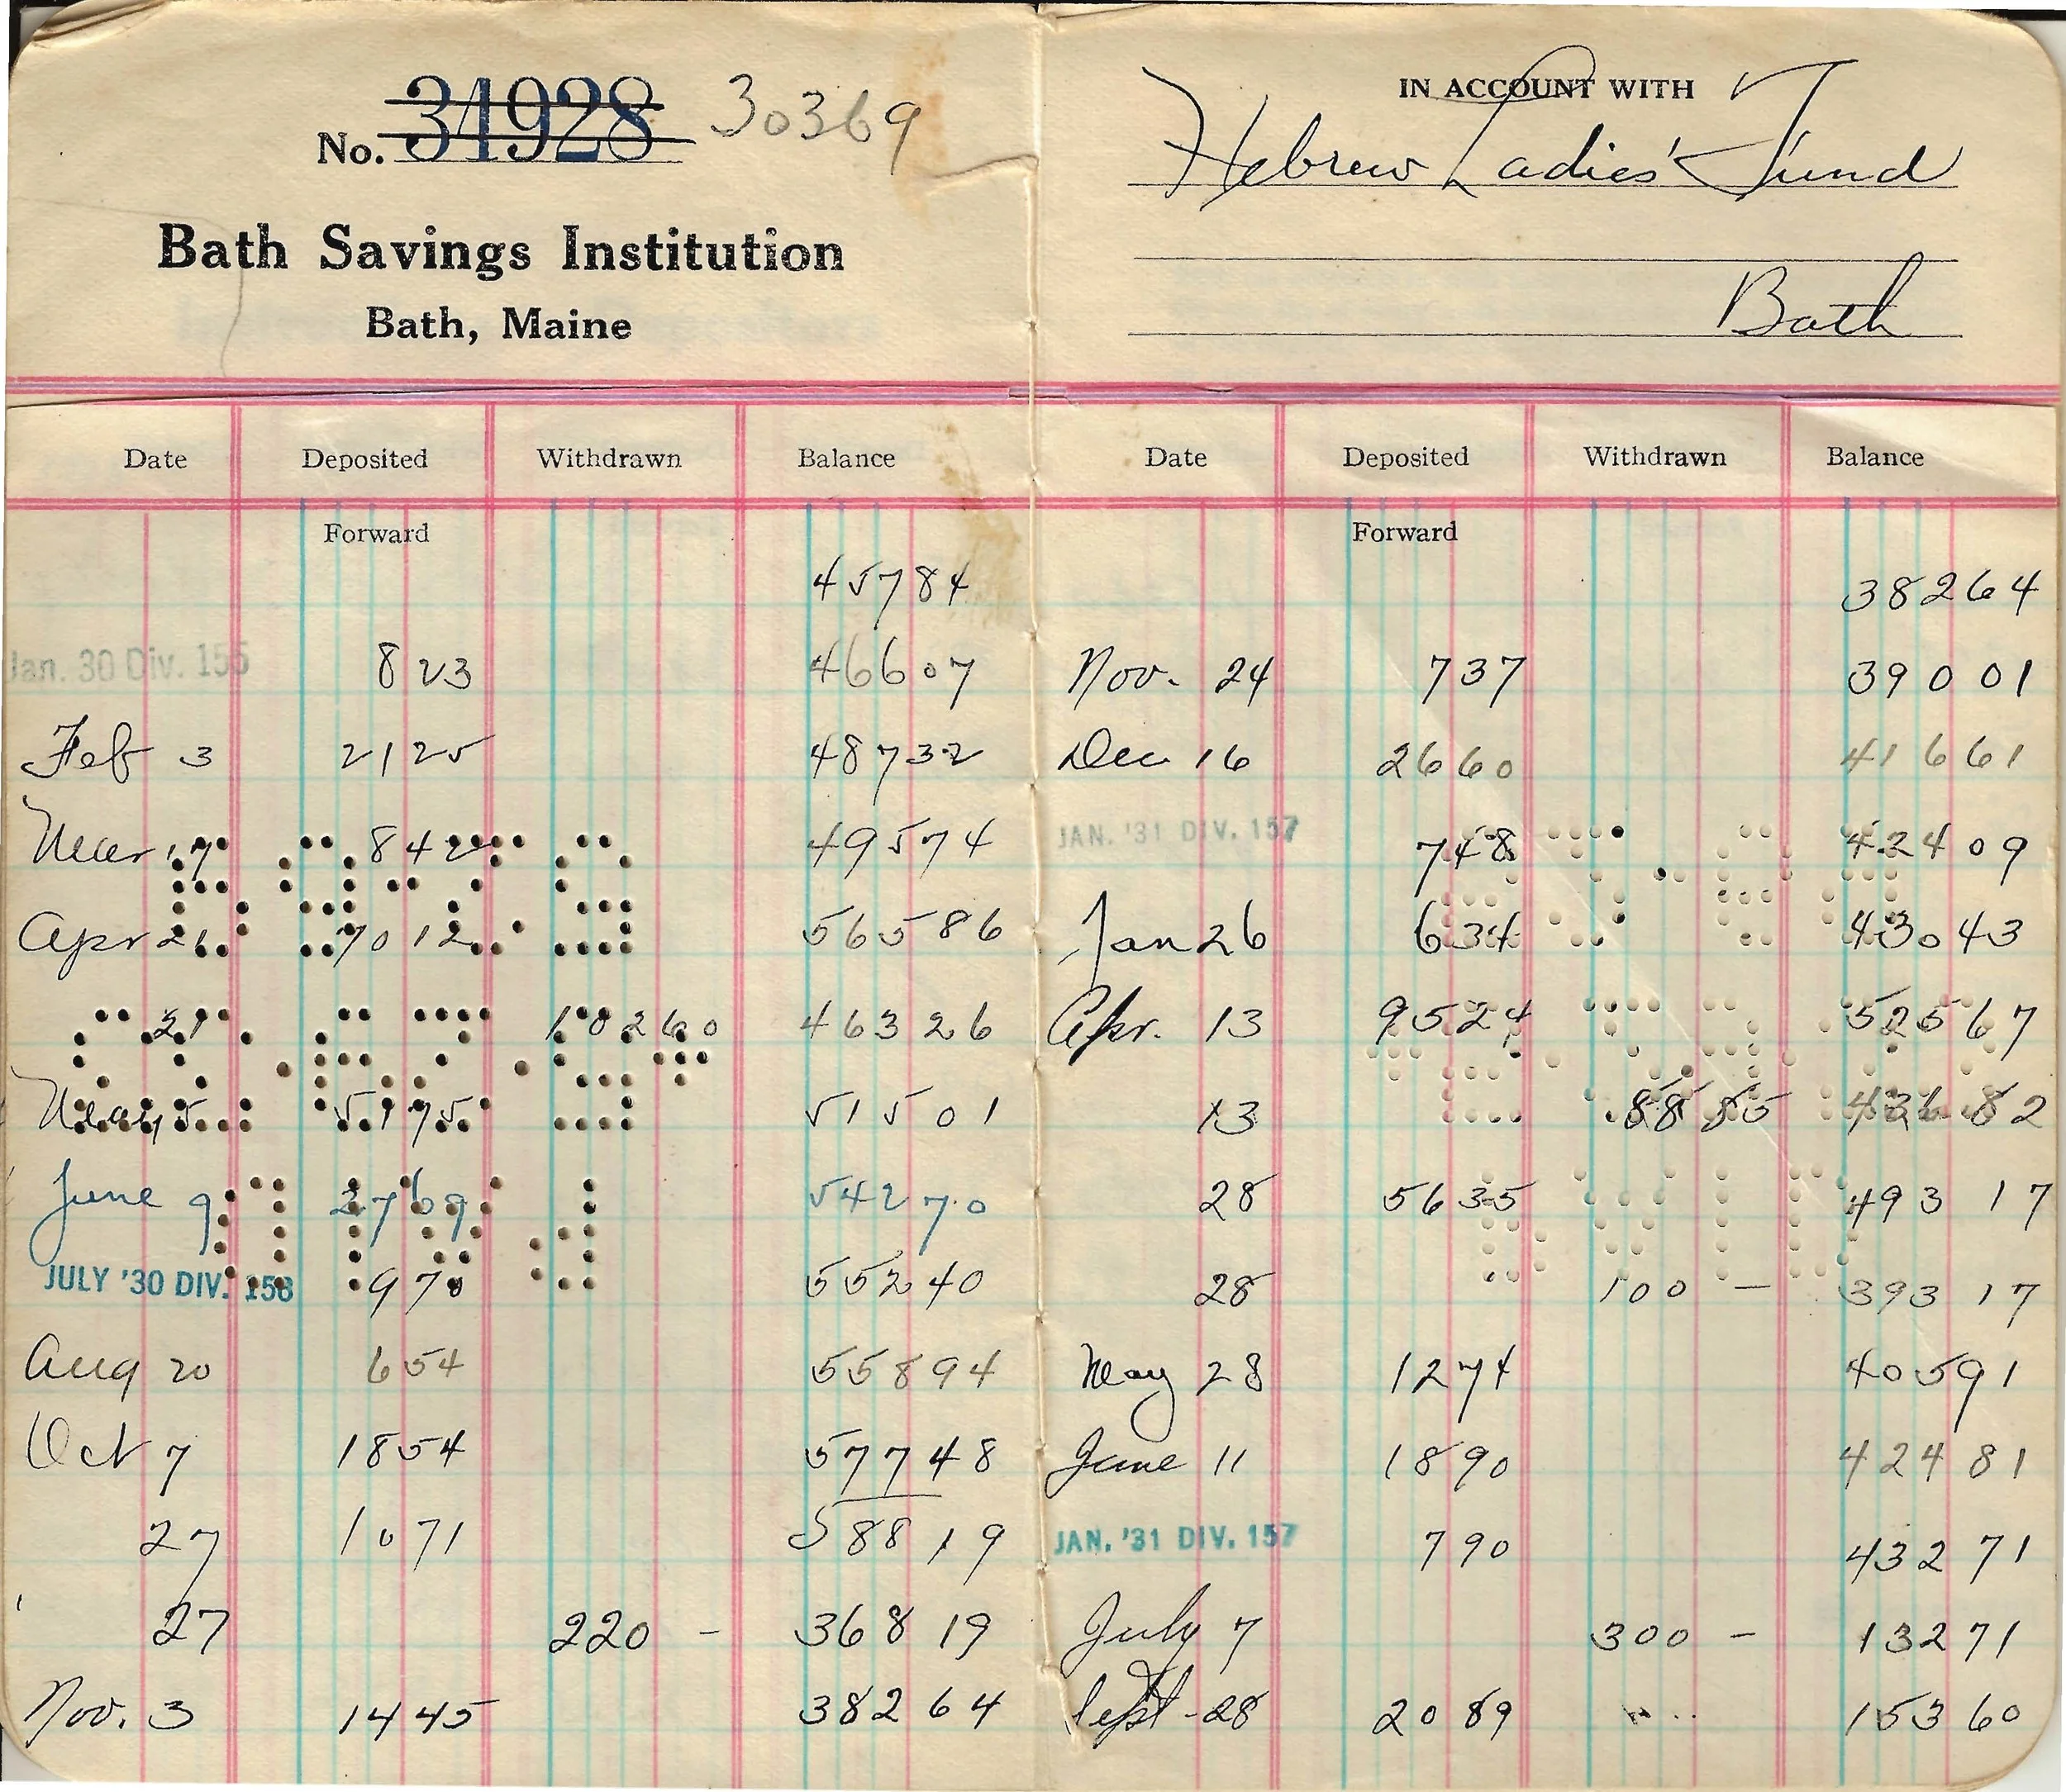 No. 34928 30369
Bath Savings Institution
Bath, Maine
Date Deposited Withdrawn Balance
Forward
457 84
Jan. 30 Div. 155 8 23 466 07
Feb 3 21 25 487 32
Mar 17 8 42 495 74
Apr 21 70 12 565 86
21 102 60 463 26
May 5 51 75 515 01
June 9 27 69 542 70
JULY '30 DIV. 156 9 70 552 40
Aug 20 6 54 558 94
Oct 7 18 54 577 48
27 10 71 588 19
27 220 - 368 19
Nov. 3 14 45 382 64
IN ACCOUNT WITH
Hebrew Ladies' Fund
Bath
Date Deposited Withdrawn Balance
Forward
382 64
Nov. 24 7 37 390 01
Dec 16 26 60 416 61
JAN. '31 DIV. 157 7 48 424 09
Jan 26 6 34 430 43
Apr. 13 95 24 525 67
13 88 85 436 82
28 56 35 493 17
28 100 — 393 17
May 28 12 74 405 91
June 11 18 90 424 81
JAN. '31 DIV. 157 7 90 432 71
July 7 300 - 132 71
Sept - 28 20 89 153 60